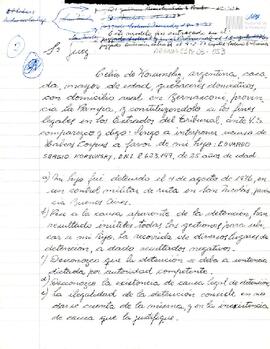 Sr Juez
Celia de Korsunsky, argentina, casa
da, mayor de edad, quehaceres domésticos,
con domicilio real en Bernasconi, provin
cia La Pampa, y constituyéndolo a los fines
legales en los Estrados del tribunal, ante V.S.
comparezco y digo: Vengo a interponer recurso de
Habeas Corpus a favor de mi hijo EDUARDO
SERGIO KORSUNSKY, DNI de 25 años de edad
a) Mi hijo fué detenido el 4 de agosto de 1976, en
un control militar de ruta en San Nicolás provin
cia Buenos Aires.
b) Pese a la causa aparente de la detención, han
resultado inútiles todas las gestiones para ubi
car a mi hijo. La recorrida de diversos lugares de
detención, a dado resultados negativos.
c) Desconozco que la detención se deba a sentencia
dictada por autoridad competente.
d) Desconozco la existencia de causa legal de detención
e) La ilegalidad de la detención consiste en no
darse cuenta de la misma, y en la inexistencia
de causa que la justifique.